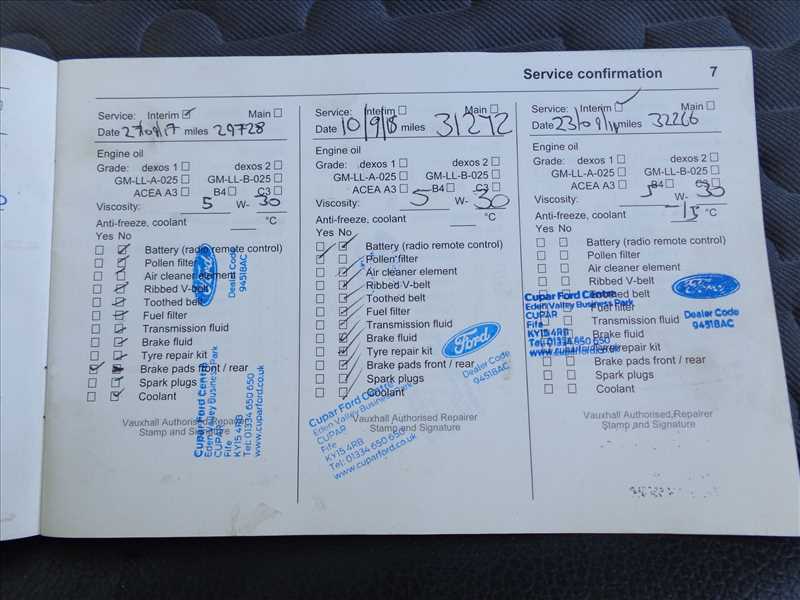 Service confirmation 7
Service: Interim ☑ Main ☐
Date 27/09/17 miles 29728
Engine oil
Grade: dexos 1 ☐ dexos 2 ☐
GM-LL-A-025 ☐ GM-LL-B-025 ☐
ACEA A3 ☐ B4 ☐ C3 ☐
Viscosity: 5 W- 30
Anti-freeze, coolant °C
Yes No
Battery (radio remote control)
Pollen filter
Air cleaner element
Ribbed V-belt
Toothed belt
Fuel filter
Transmission fluid
Brake fluid
Tyre repair kit
Brake pads front / rear
Spark plugs
Coolant
Vauxhall Authorised Repairer
Stamp and Signature
Ford
Dealer Code
9451BAC
Cupar Ford Centre
Eden Valley Business Park
CUPAR
Fife
KY15 4RB
Tel: 01334 650 650
www.cuparford.co.uk
Service: Interim ☐ Main ☐
Date 10/9/18 miles 31272
Engine oil
Grade: dexos 1 ☐ dexos 2 ☐
GM-LL-A-025 ☐ GM-LL-B-025 ☐
ACEA A3 ☐ B4 ☐ C3 ☐
Viscosity: 5 W- 30
Anti-freeze, coolant °C
Yes No
Battery (radio remote control)
Pollen filter
Air cleaner element
Ribbed V-belt
Toothed belt
Fuel filter
Transmission fluid
Brake fluid
Tyre repair kit
Brake pads front / rear
Spark plugs
Coolant
Vauxhall Authorised Repairer
Stamp and Signature
Ford
Dealer Code
9451BAC
Cupar Ford Centre
Eden Valley Business Park
CUPAR
Fife
KY15 4RB
Tel: 01334 650 650
www.cuparford.co.uk
Service: Interim ☑ Main ☐
Date 23/09/ miles 32266
Engine oil
Grade: dexos 1 ☐ dexos 2 ☐
GM-LL-A-025 ☐ GM-LL-B-025 ☐
ACEA A3 ☐ B4 ☐ C3 ☐
Viscosity: 5 W- 30
Anti-freeze, coolant 15 °C
Yes No
Battery (radio remote control)
Pollen filter
Air cleaner element
Ribbed V-belt
Toothed belt
Fuel filter
Transmission fluid
Brake fluid
Tyre repair kit
Brake pads front / rear
Spark plugs
Coolant
Vauxhall Authorised Repairer
Stamp and Signature
Dealer Code
9451BAC
Cupar Ford Centre
Eden Valley Business Park
CUPAR
Fife
KY15 4RB
Tel: 01334 650 650
www.cuparford.co.uk